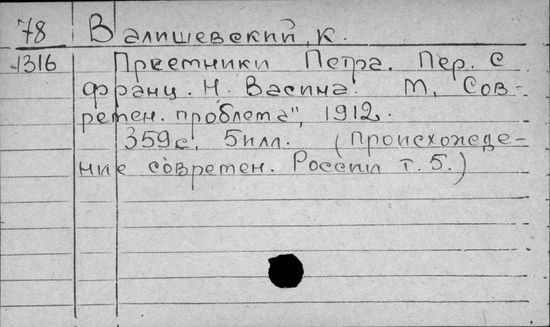 78 Валишевский, К.
1316 Преемники Петра. Пер. с
франц. Н. Васина. М, Сов-
ремен. проблема", 1912.
359с, 5илл. (Происхожде-
ние современ. России т. 5.)